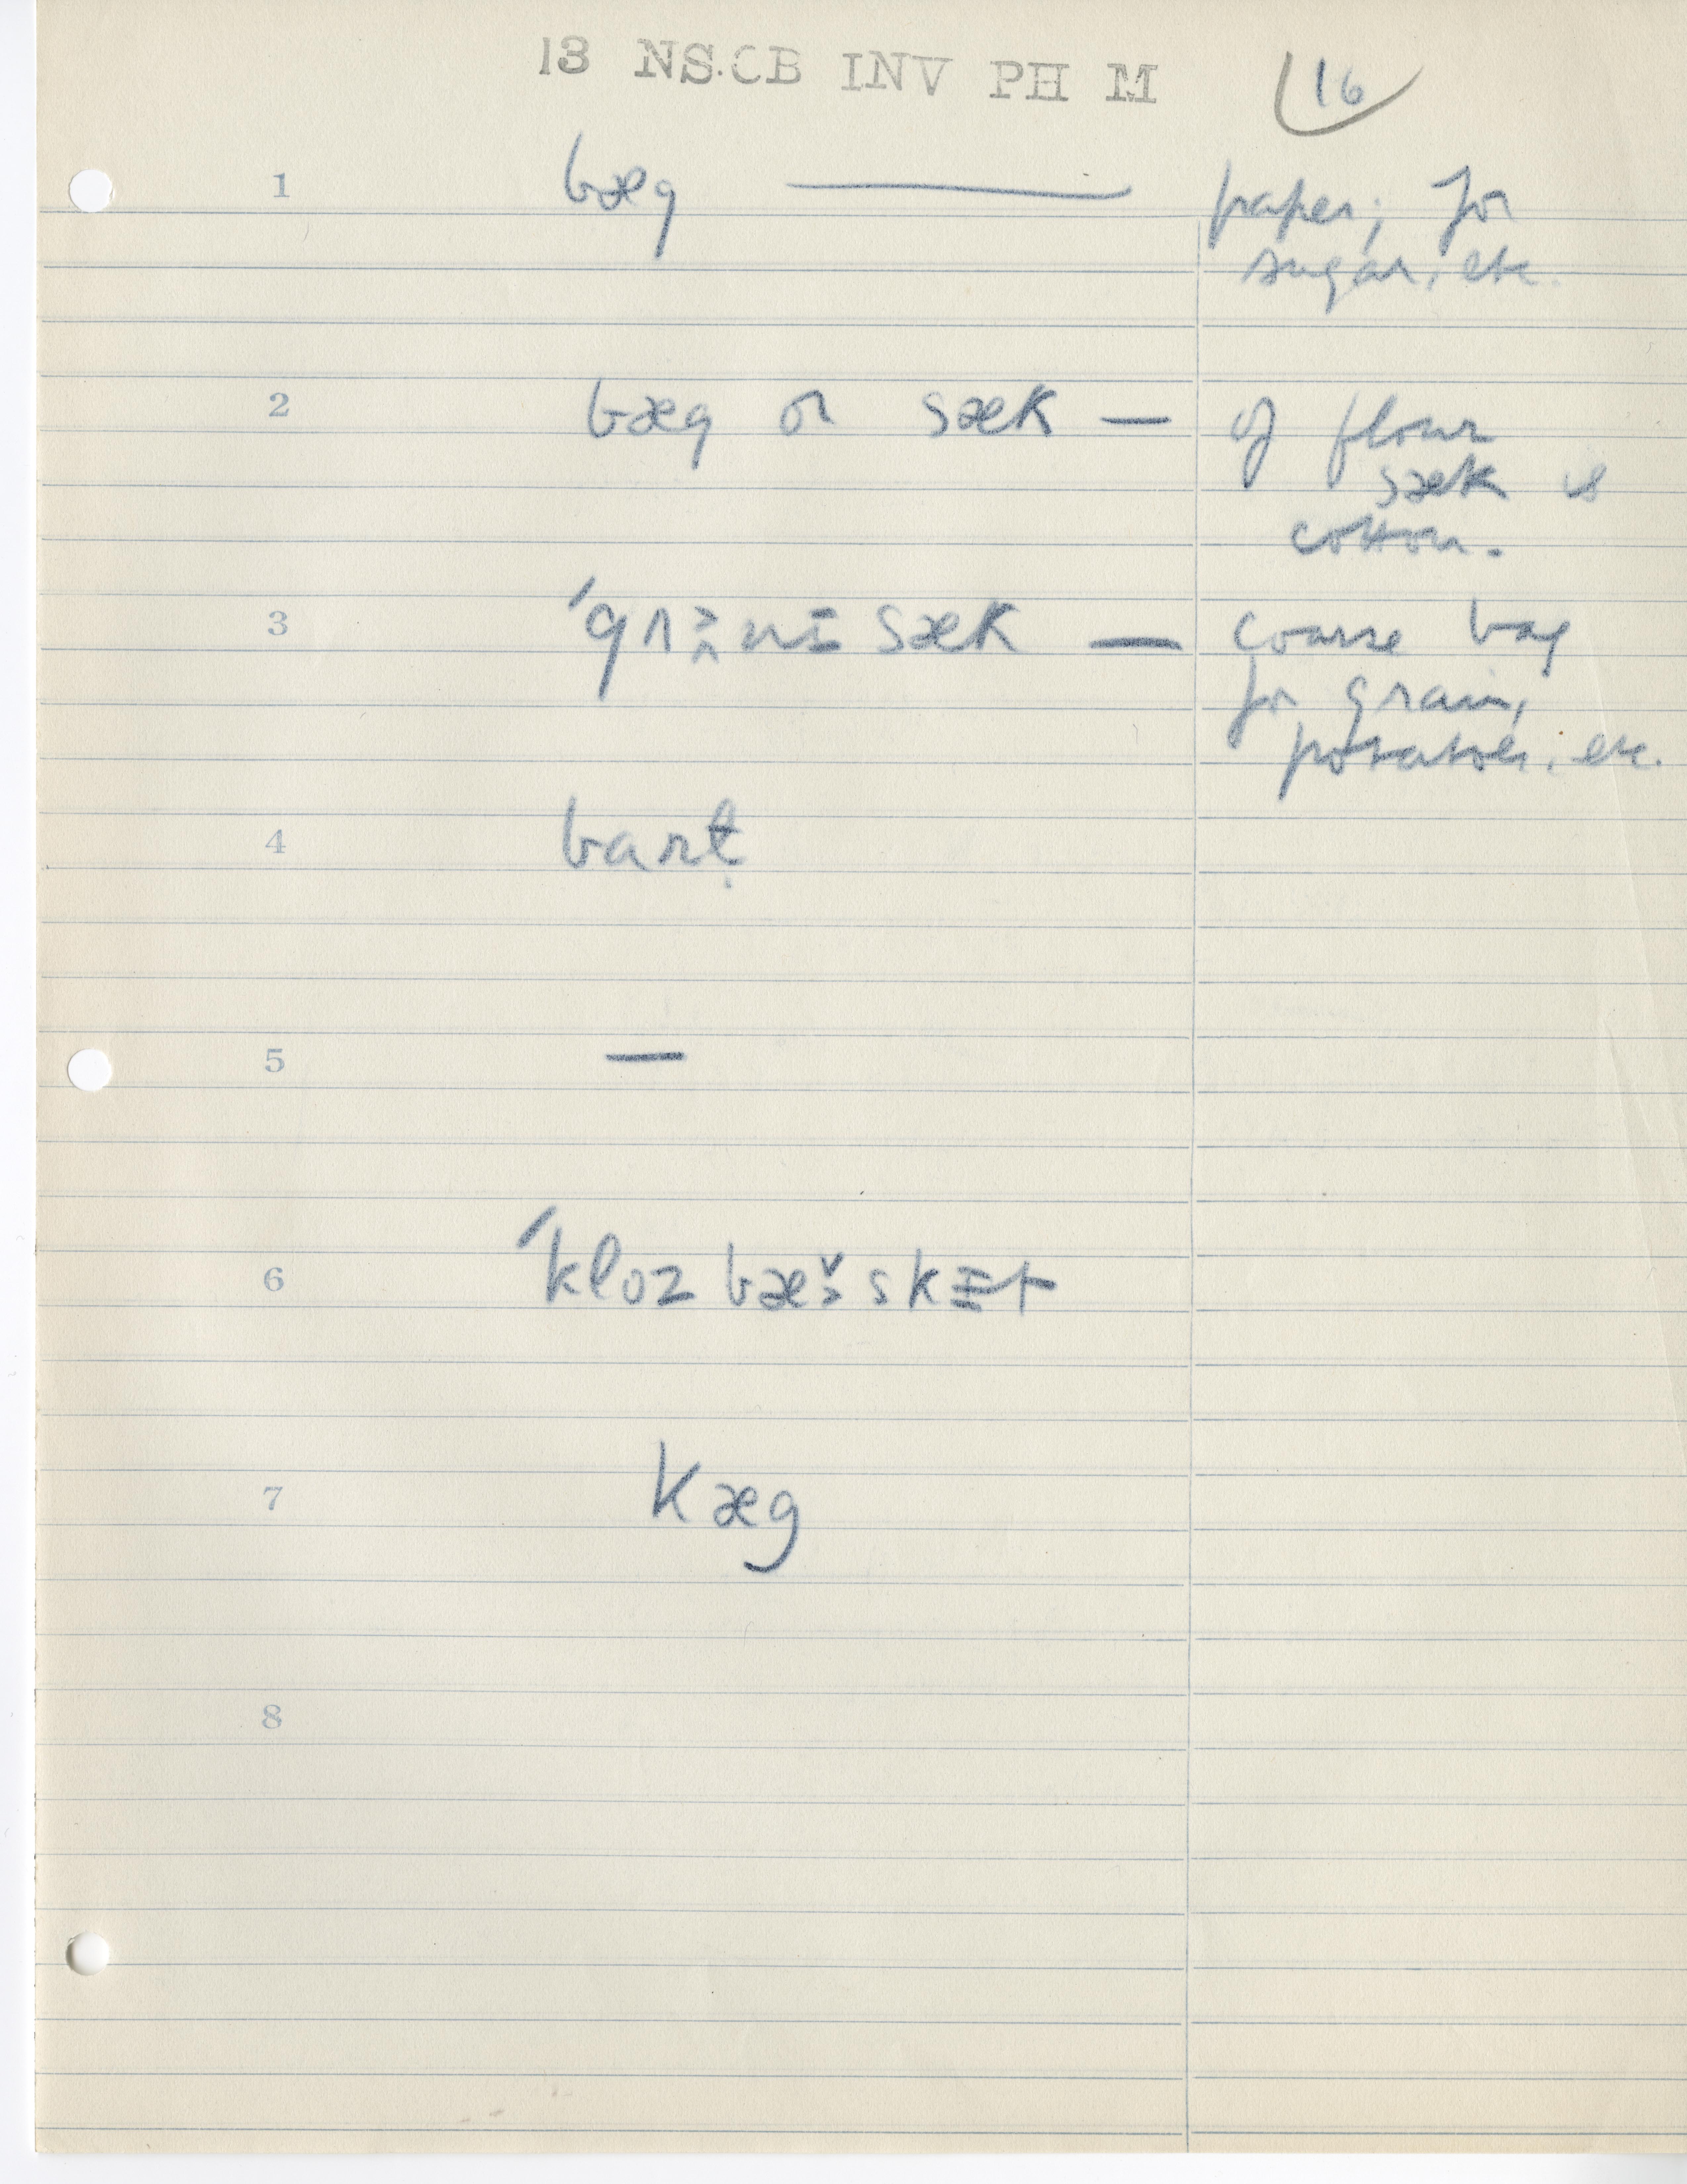 13 NS.CB INV PH M 16
1 bæg — paper; for
sugar, etc.
2 bæg or sæk — of flour
sæk is
cotton.
3 sæk — coarse bag
for grain,
potatoes, etc.
4
5 —
6 ˊkloz
7 kæg
8